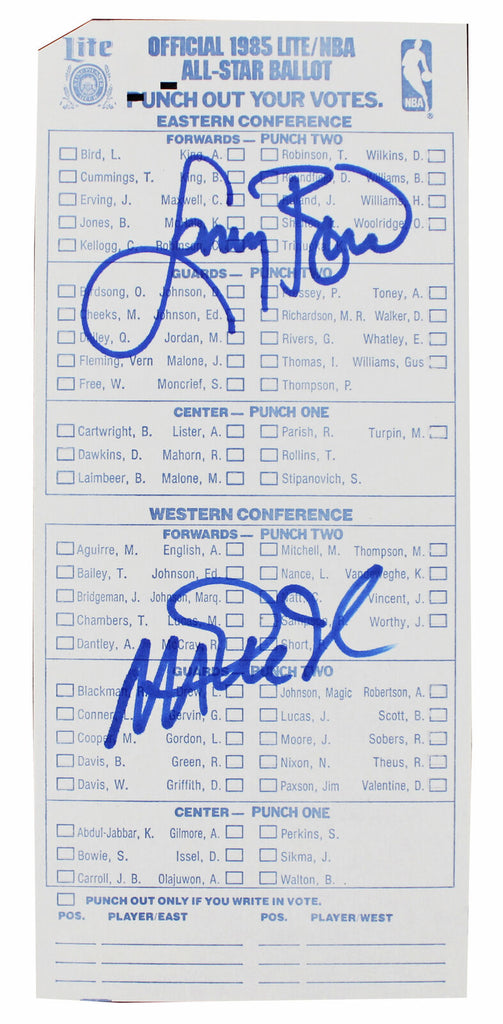 Lite OFFICIAL 1985 LITE/NBA
ALL-STAR BALLOT
PUNCH OUT YOUR VOTES. NBA
EASTERN CONFERENCE
FORWARDS— PUNCH TWO
Bird, L. King, A. Robinson, T. Wilkins, D.
Cummings, T. King, B. Roundfield, D. Williams, B.
Erving, J. Maxwell, C. Williams, H.
Jones, B. McHale, K. Woolridge, O.
Kellogg, C. Robinson, C.
Larry Bird
GUARDS— PUNCH TWO
Birdsong, O. Johnson, D. Pressey, P. Toney, A.
Cheeks, M. Johnson, Ed. Richardson, M. R. Walker, D.
Dailey, Q. Jordan, M. Rivers, G. Whatley, E.
Fleming, Vern Malone, J. Thomas, I. Williams, Gus
Free, W. Moncrief, S. Thompson, P.
CENTER— PUNCH ONE
Cartwright, B. Lister, A. Parish, R. Turpin, M.
Dawkins, D. Mahorn, R. Rollins, T.
Laimbeer, B. Malone, M. Stipanovich, S.
WESTERN CONFERENCE
FORWARDS— PUNCH TWO
Aguirre, M. English, A. Mitchell, M. Thompson, M.
Bailey, T. Johnson, Ed. Nance, L. Vandeweghe, K.
Bridgeman, J. Johnson, Marq. Natt, C. Vincent, J.
Chambers, T. Lucas, M. Sampson, R. Worthy, J.
Dantley, A. McCray, R. Short,
Magic Johnson
GUARDS— PUNCH TWO
Blackman, R. Drew, L. Johnson, Magic Robertson, A.
Conner, L. Gervin, G. Lucas, J. Scott, B.
Cooper, M. Gordon, L. Moore, J. Sobers, R.
Davis, B. Green, R. Nixon, N. Theus, R.
Davis, W. Griffith, D. Paxson, Jim Valentine, D.
CENTER— PUNCH ONE
Abdul-Jabbar, K. Gilmore, A. Perkins, S.
Bowie, S. Issel, D. Sikma, J.
Carroll, J. B. Olajuwon, A. Walton, B.
PUNCH OUT ONLY IF YOU WRITE IN VOTE.
POS. PLAYER/EAST POS. PLAYER/WEST